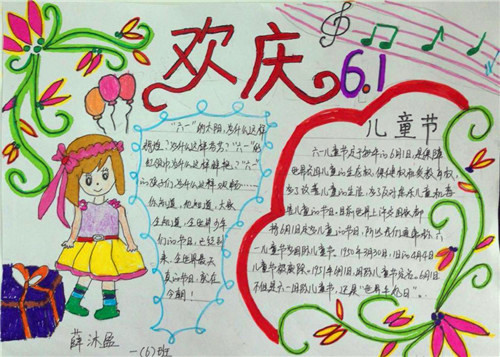 欢庆
6.1
"六一"的太阳,为什么这样
辉煌?为什么这样芬芳?"六一"的
红领巾为什么这样鲜艳?"六一"
的孩子们为什么这样欢畅……
你知道,他知道,大家
全知道,全世界少年
们的节日,已经到
来,全世界最大
在今朝!
儿童节
六一儿童节定于每年的6月1日,是保障
世界各国儿童的生存权、保健权和受教育权,
为了改善儿童的生活,为了反对
的节日,目前世上许多国家都
将6月1日定为儿童的节日,所以我们通常称六
一儿童节为国际儿童节。1950年3月30日,旧的4月4日
儿童节被废除。1951年6月1日,国际儿童节定名。6月1日
不但是六一国际儿童节,还是"世界牛奶日"。
薛冰盈
一(6)班